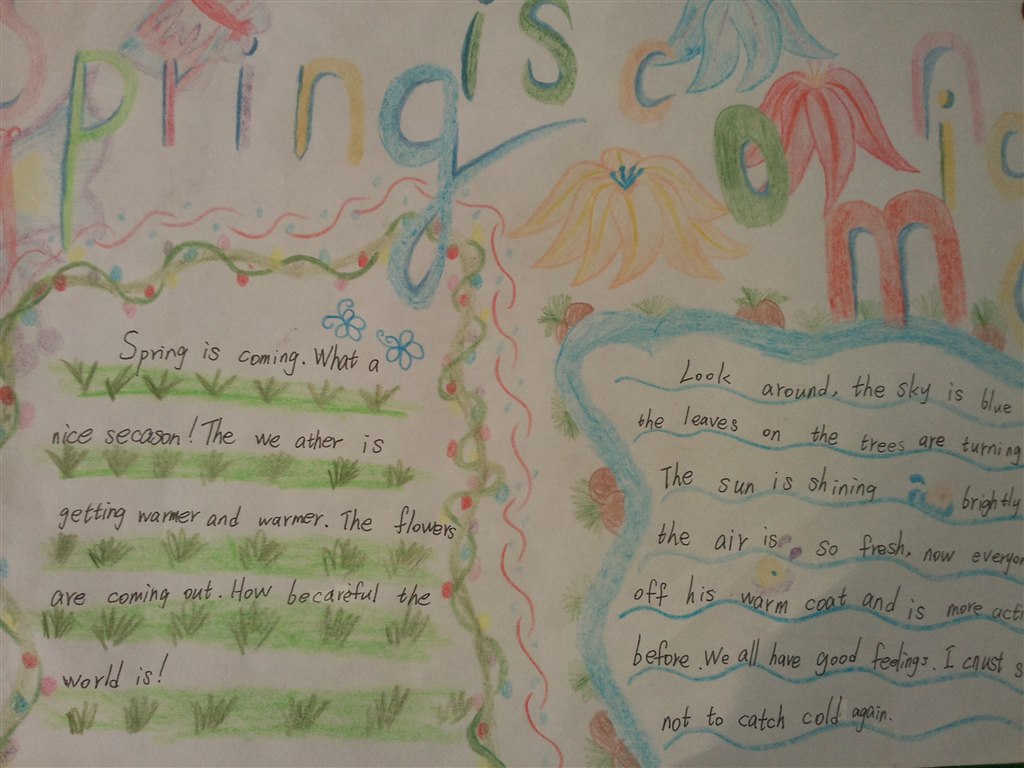 Spring is coming
Spring is coming. What a
nice secason! The we ather is
getting warmer and warmer. The flowers
are coming out. How becareful the
world is!
Look around, the sky is blue
the leaves on the trees are turning
The sun is shining brightly
the air is so frosh, now everyon
off his warm coat and is more acti
before. We all have good feelings. I cnust s
not to catch cold again.